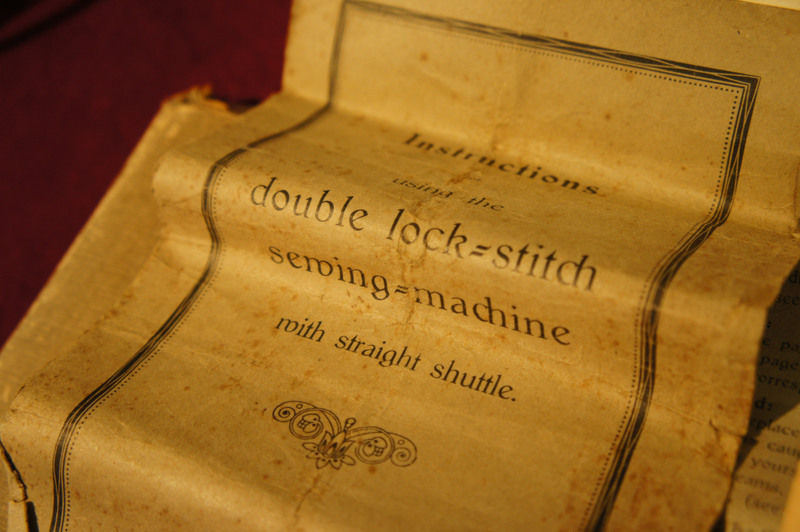 Instructions
using the
double lock=stitch
sewing=machine
with straight shuttle.
e pa
page
orres
d:
place
e cau
yours
eams,
(see